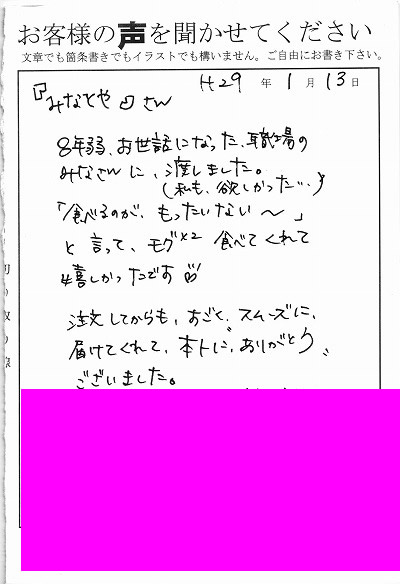 お客様の声を聞かせてください
文章でも箇条書きでもイラストでも構いません。ご自由にお書き下さい。
H29 年 1 月 13 日
『みなとや』さん
8年弱、お世話になった、職場の
みなさんに、渡しました。
(私も、欲しかった…)
「食べるのが、もったいない〜」
と言って、モグ×2 食べてくれて
嬉しかったです
注文してからも、すごく、スムーズに、
届けてくれて、本トに、"ありがとう"
ございました。